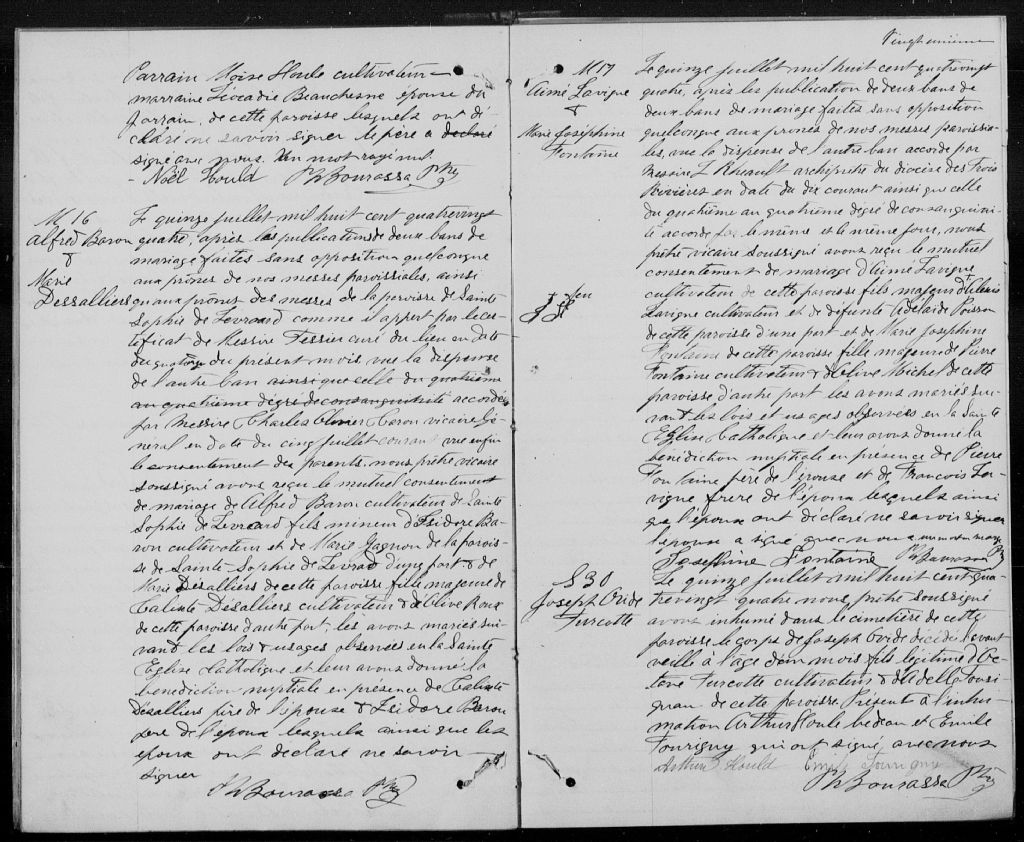 Parrain Moïse Houle cultivateur
marraine Léocadie Beauchesne epouse du
parrain, de cette paroisse lesquels ont dé-
claré ne savoir signer le père a declaré
signé avec nous. Un mot rayé nul.
Noël Hould Ph Bourassa Ptre
M 16
Alfred Baron
&
Marie
Desalliers
Le quinze juillet mil huit cent quatrevingt
quatre, après les publications de deux bans de
mariage faites sans opposition quelconque
aux prônes de nos messes paroissiales, ainsi
qu'aux prones des messes de la paroisse de Sainte
Sophie de Levrard comme il appert par le cer-
tificat de Messire Tessier curé du lieu en date
du quatorze du présent mois, vue la dispense
de l'autre ban ainsi que celle du quatrième
au quatrième degré de consanguinité accordée
par Messire Charles Olivier Caron vicaire Gé-
néral en date du cinq juillet courant vue enfin
le consentement des parents, nous prêtre vicaire
soussigné avons reçu le mutuel consentement
de mariage de Alfred Baron cultivateur de Sainte
Sophie de Levrard fils mineur d'Isidore Ba-
ron cultivateur et de Marie Gagnon de la parois-
se de Sainte Sophie de Levrad d'une part & de
Marie Désalliers de cette paroisse fille majeure de
Calixte Désalliers cultivateur & d'Olive Roux
de cette paroisse d'autre part, les avons mariés sui-
vant les lois & usages observés en la Sainte
Eglise Catholique et leur avons donné la
bénédiction nuptiale en présence de Calixte
Désalliers père de l'épouse & Isidore Baron
père de l'époux lesquels ainsi que les
époux ont déclaré ne savoir
signer
Ph Bourassa Ptre
Vingt unième
M 17
Aimé Lavigne
&
Marie Joséphine
Fontaine
Le quinze juillet mil huit cent quatrevingt
quatre, après les publication de deux bans de
deux bans de mariage faites sans opposition
quelconque aux prones de nos messes paroissia-
les, vue la dispense de l'autre ban accordé par
Messire L Rheault archiprêtre du diocèse des Trois
Rivières en date du dix courant ainsi que celle
du quatrième au quatrième dégré de consanguini-
té accordé par le même et le même jour, nous
prêtre vicaire soussigné avons reçu le mutuel
consentement de mariage d'Aimé Lavigne
cultivateur de cette paroisse fils majeur d'Alexis
Lavigne cultivateur et de défunte Adélaïde Poisson
de cette paroisse d'une part et de Marie Josephine
Fontaine de cette paroisse fille majeure de Pierre
Fontaine cultivateur & d'Olive Michel de cette
paroisse d'autre part les avons mariés sui-
vant les lois et usages observées en la Sainte
Eglise Catholique et leur avons donné la
bénédiction nuptiale en présence de Pierre
Fontaine père de l'épouse et de François La-
vigne frere de l'époux lesquels ainsi
que l'époux ont déclaré ne savoir signer
l'épouse a signé avec nous
Josephine Fontaine Ph Bourassa Ptre
S 30
Joseph Ovide
Turcotte
Le quinze juillet mil huit cent qua-
trevingt quatre nous prêtre soussigné
avons inhumé dans le cimetière de cette
paroisse le corps de Joseph Ovide décédé l'avant
veille à l'âge d'un mois fils légitime d'Oc-
tave Turcotte cultivateur & d'Adell Tousi-
gnan de cette paroisse. Présent à l'inhu-
mation Arthur Houle bedeau et Emile
Tourigny qui ont signé avec nous
Arthur Hould Emile Tourigny
Ph Bourassa Ptre